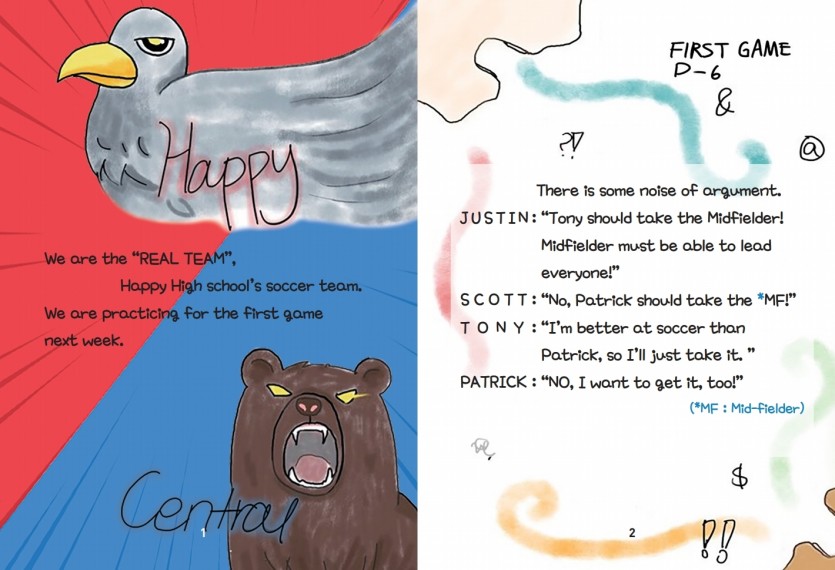 Happy
We are the “REAL TEAM”,
Happy High school’s soccer team.
We are practicing for the first game
next week.
Central
1
FIRST GAME
D-6
&
@
?!
There is some noise of argument.
JUSTIN: “Tony should take the Midfielder!
Midfielder must be able to lead
everyone!”
SCOTT: “No, Patrick should take the *MF!”
TONY: “I’m better at soccer than
Patrick, so I’ll just take it. ”
PATRICK: “NO, I want to get it, too!”
(*MF : Mid-fielder)
$
2
!!